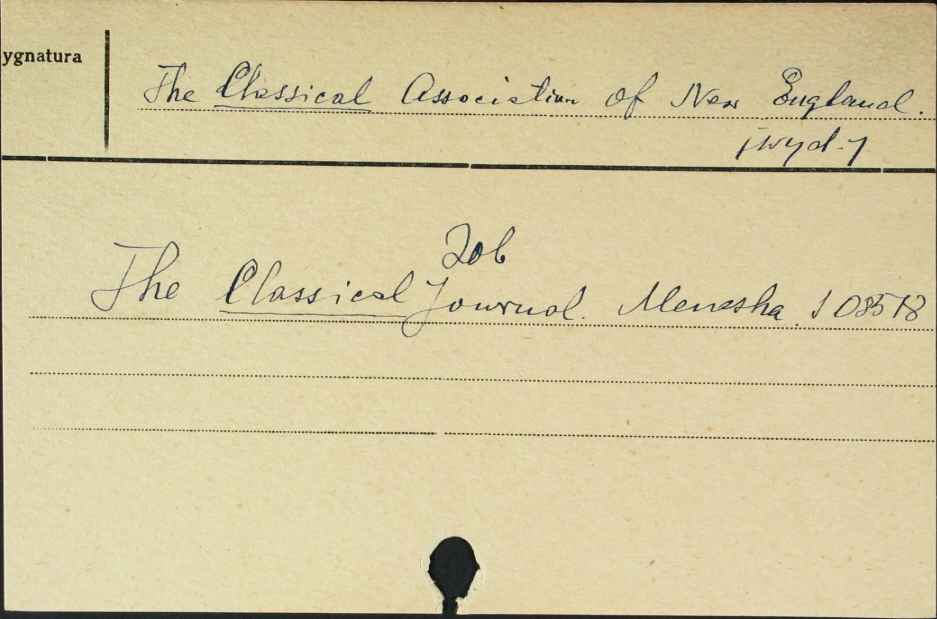 ygnatura
The Classical Association of New England.
[wyd.]
Zob
The Classical Journal. Menasha. 108578